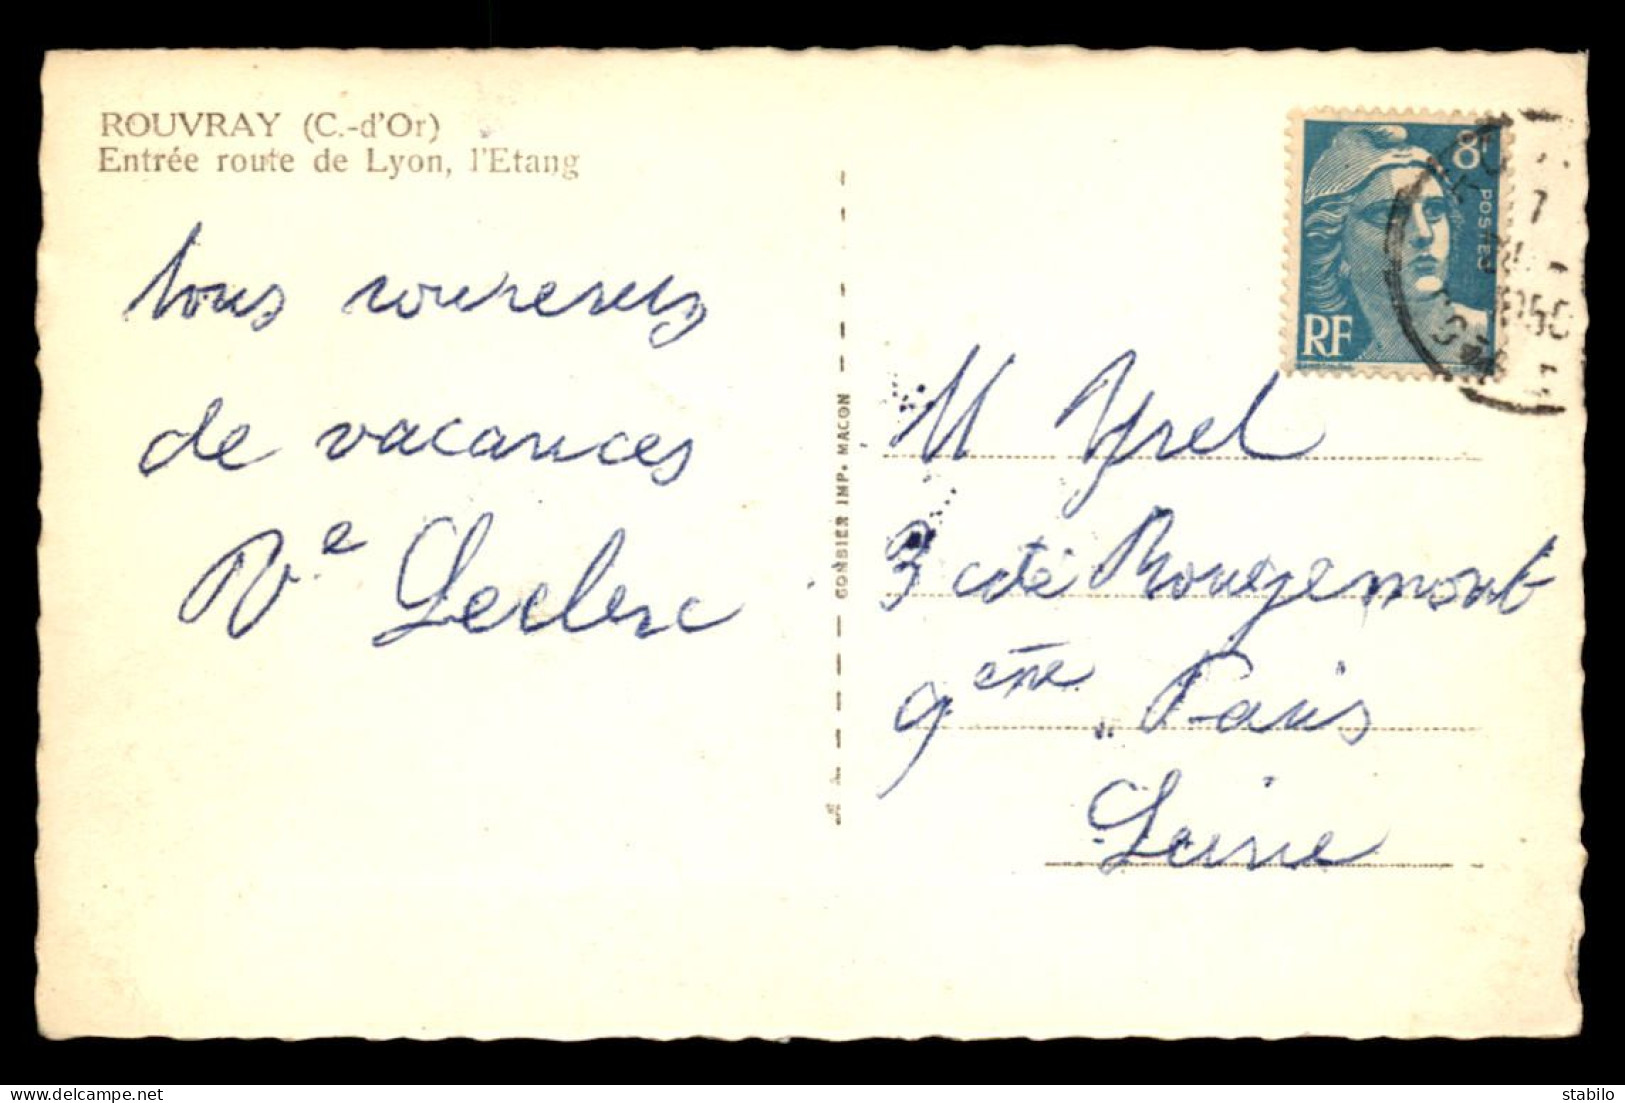 ROUVRAY (C.-d'Or)
Entrée route de Lyon, l'Etang
8F
POSTES
RF
bons souvenirs
de vacances
Vve Leclerc
COMBIER IMP. MACON
M Yrel
3 cité Rougemont
9ème Paris
Seine
stabilo
www.delcampe.net